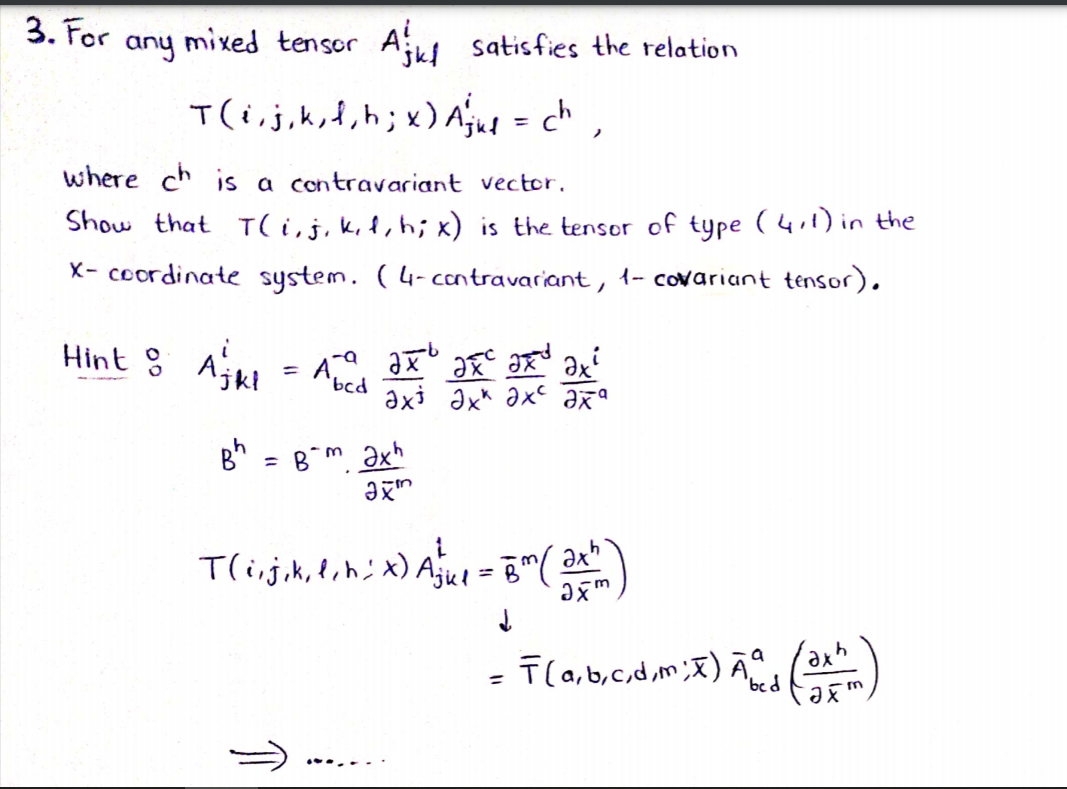 3. For any mixed tensor A^i_{jkl} satisfies the relation
T(i,j,k,l,h;x) A^i_{jkl} = c^h ,
where c^h is a contravariant vector.
Show that T(i,j,k,l,h;x) is the tensor of type (4,1) in the
x-coordinate system. (4-contravariant, 1-covariant tensor).
Hint : A^i_{jkl} = A^{-a}_{bcd} ∂x̄^b/∂x^j ∂x̄^c/∂x^k ∂x̄^d/∂x^c ∂x^i/∂x̄^a
B^h = B^{-m} . ∂x^h/∂x̄^m
T(i,j,k,l,h;x) A^i_{jkl} = B̄^m (∂x^h/∂x̄^m)
↓
= T̄(a,b,c,d,m;x̄) Ā^a_{bcd} (∂x^h/∂x̄^m)
⟹ .......